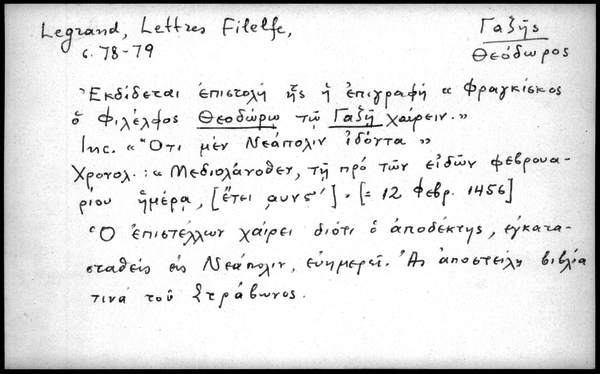 Legrand, Lettres Filelfe,
c. 78-79
Γαζῆς
Θεόδωρος
Ἐκδίδεται ἐπιστολὴ ἧς ἡ ἐπιγραφὴ « Φραγκίσκος
ὁ Φιλέλφος Θεοδώρῳ τῷ Γαζῇ χαίρειν. »
Inc. « Ὅτι μὲν Νεάπολιν ἰδόντα »
Χρονολ.: « Μεδιολάνοθεν, τῇ πρὸ τῶν εἰδῶν φεβρουα-
ρίου ἡμέρᾳ, [ἔτει ͵αυνς´]. [= 12 Φεβρ. 1456]
Ὁ ἐπιστέλλων χαίρει διότι ὁ ἀποδέκτης, ἐγκατα-
σταθεὶς εἰς Νεάπολιν, εὐημερεῖ. Ἂς ἀποστείλῃ βιβλία
τινὰ τοῦ Στράβωνος.